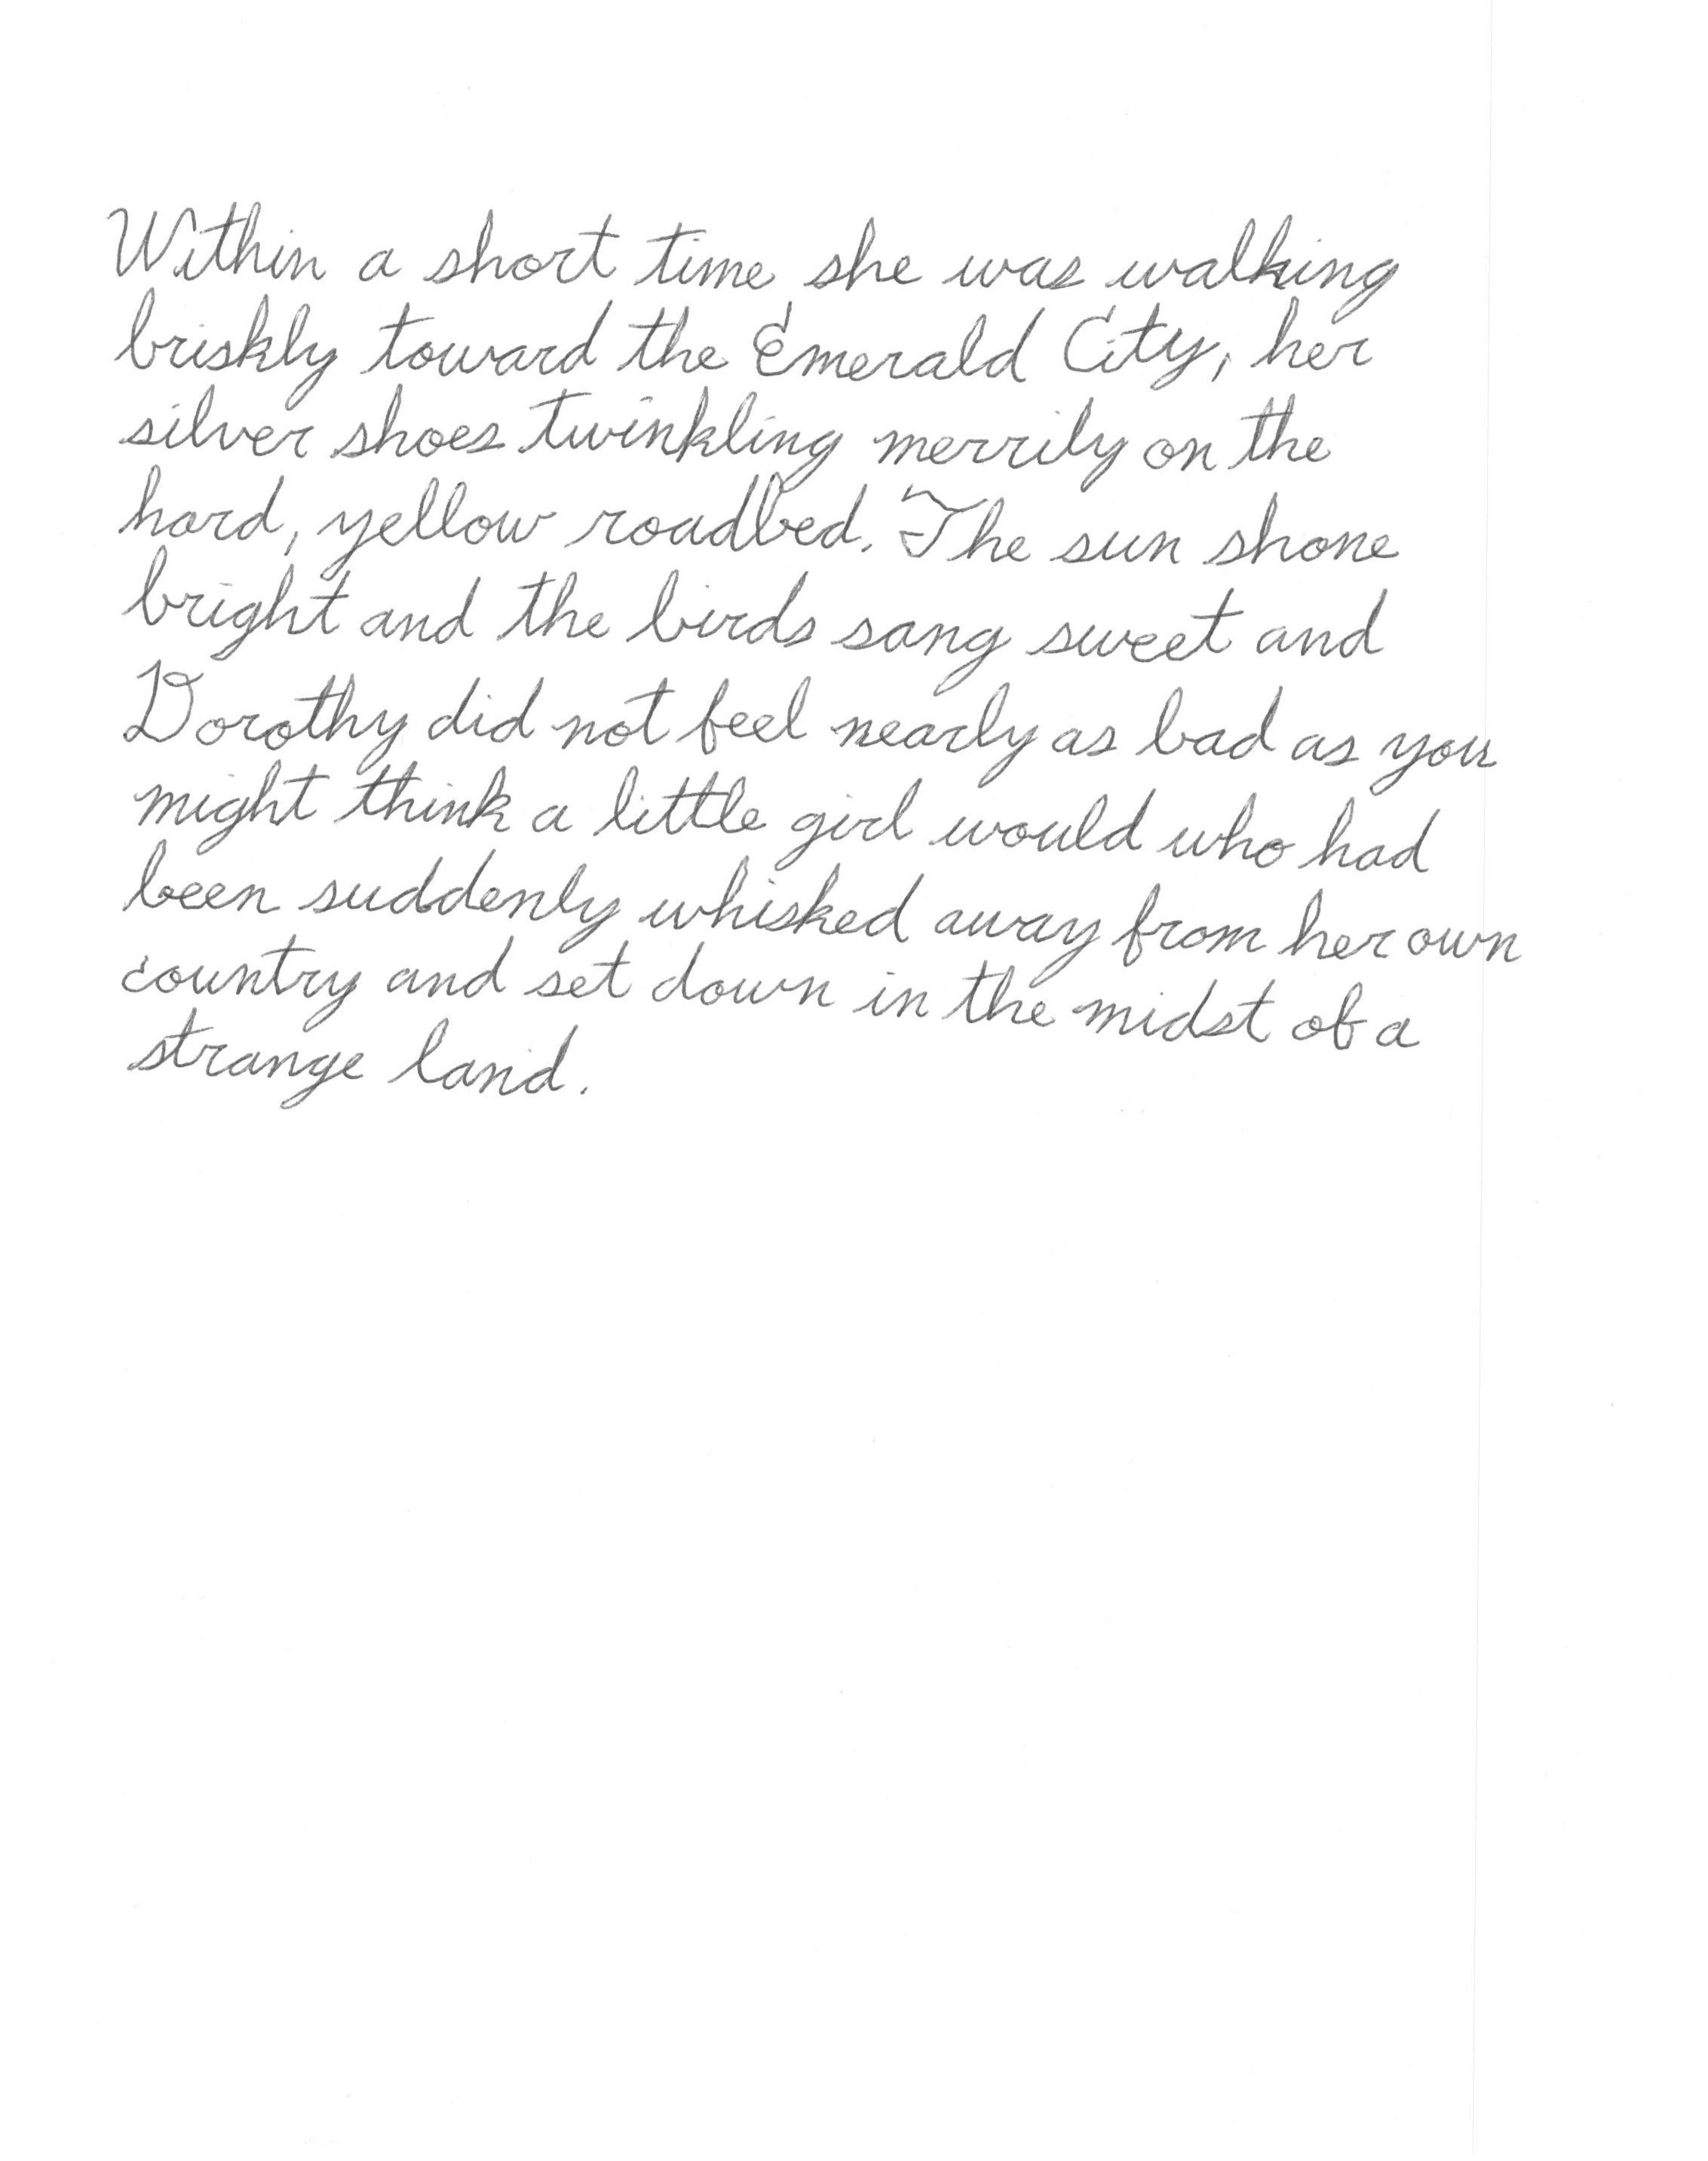 Within a short time she was walking
briskly toward the Emerald City, her
silver shoes twinkling merrily on the
hard, yellow roadbed. The sun shone
bright and the birds sang sweet and
Dorothy did not feel nearly as bad as you
might think a little girl would who had
been suddenly whisked away from her own
country and set down in the midst of a
strange land.